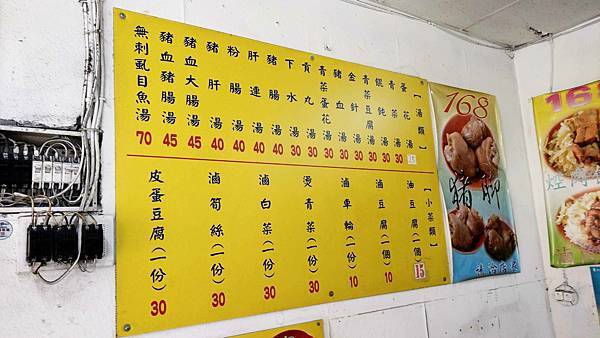 【湯類】
蛋花湯
青菜湯 30
餛飩湯 30
青菜豆腐湯 30
金針湯 30
豬血湯 30
青菜蛋花湯 30
貢丸湯 30
下水湯 30
豬腸湯 40
肝連湯 40
粉腸湯 40
豬肝湯 40
豬血大腸湯 45
豬血豬腸湯 45
無刺虱目魚湯 70
【小菜類】
油豆腐(一個) 15
滷豆腐(一個) 10
滷車輪(一份) 10
燙青菜(一份) 30
滷白菜(一份) 30
滷筍絲(一份) 30
皮蛋豆腐(一份) 30
168
豬腳
168